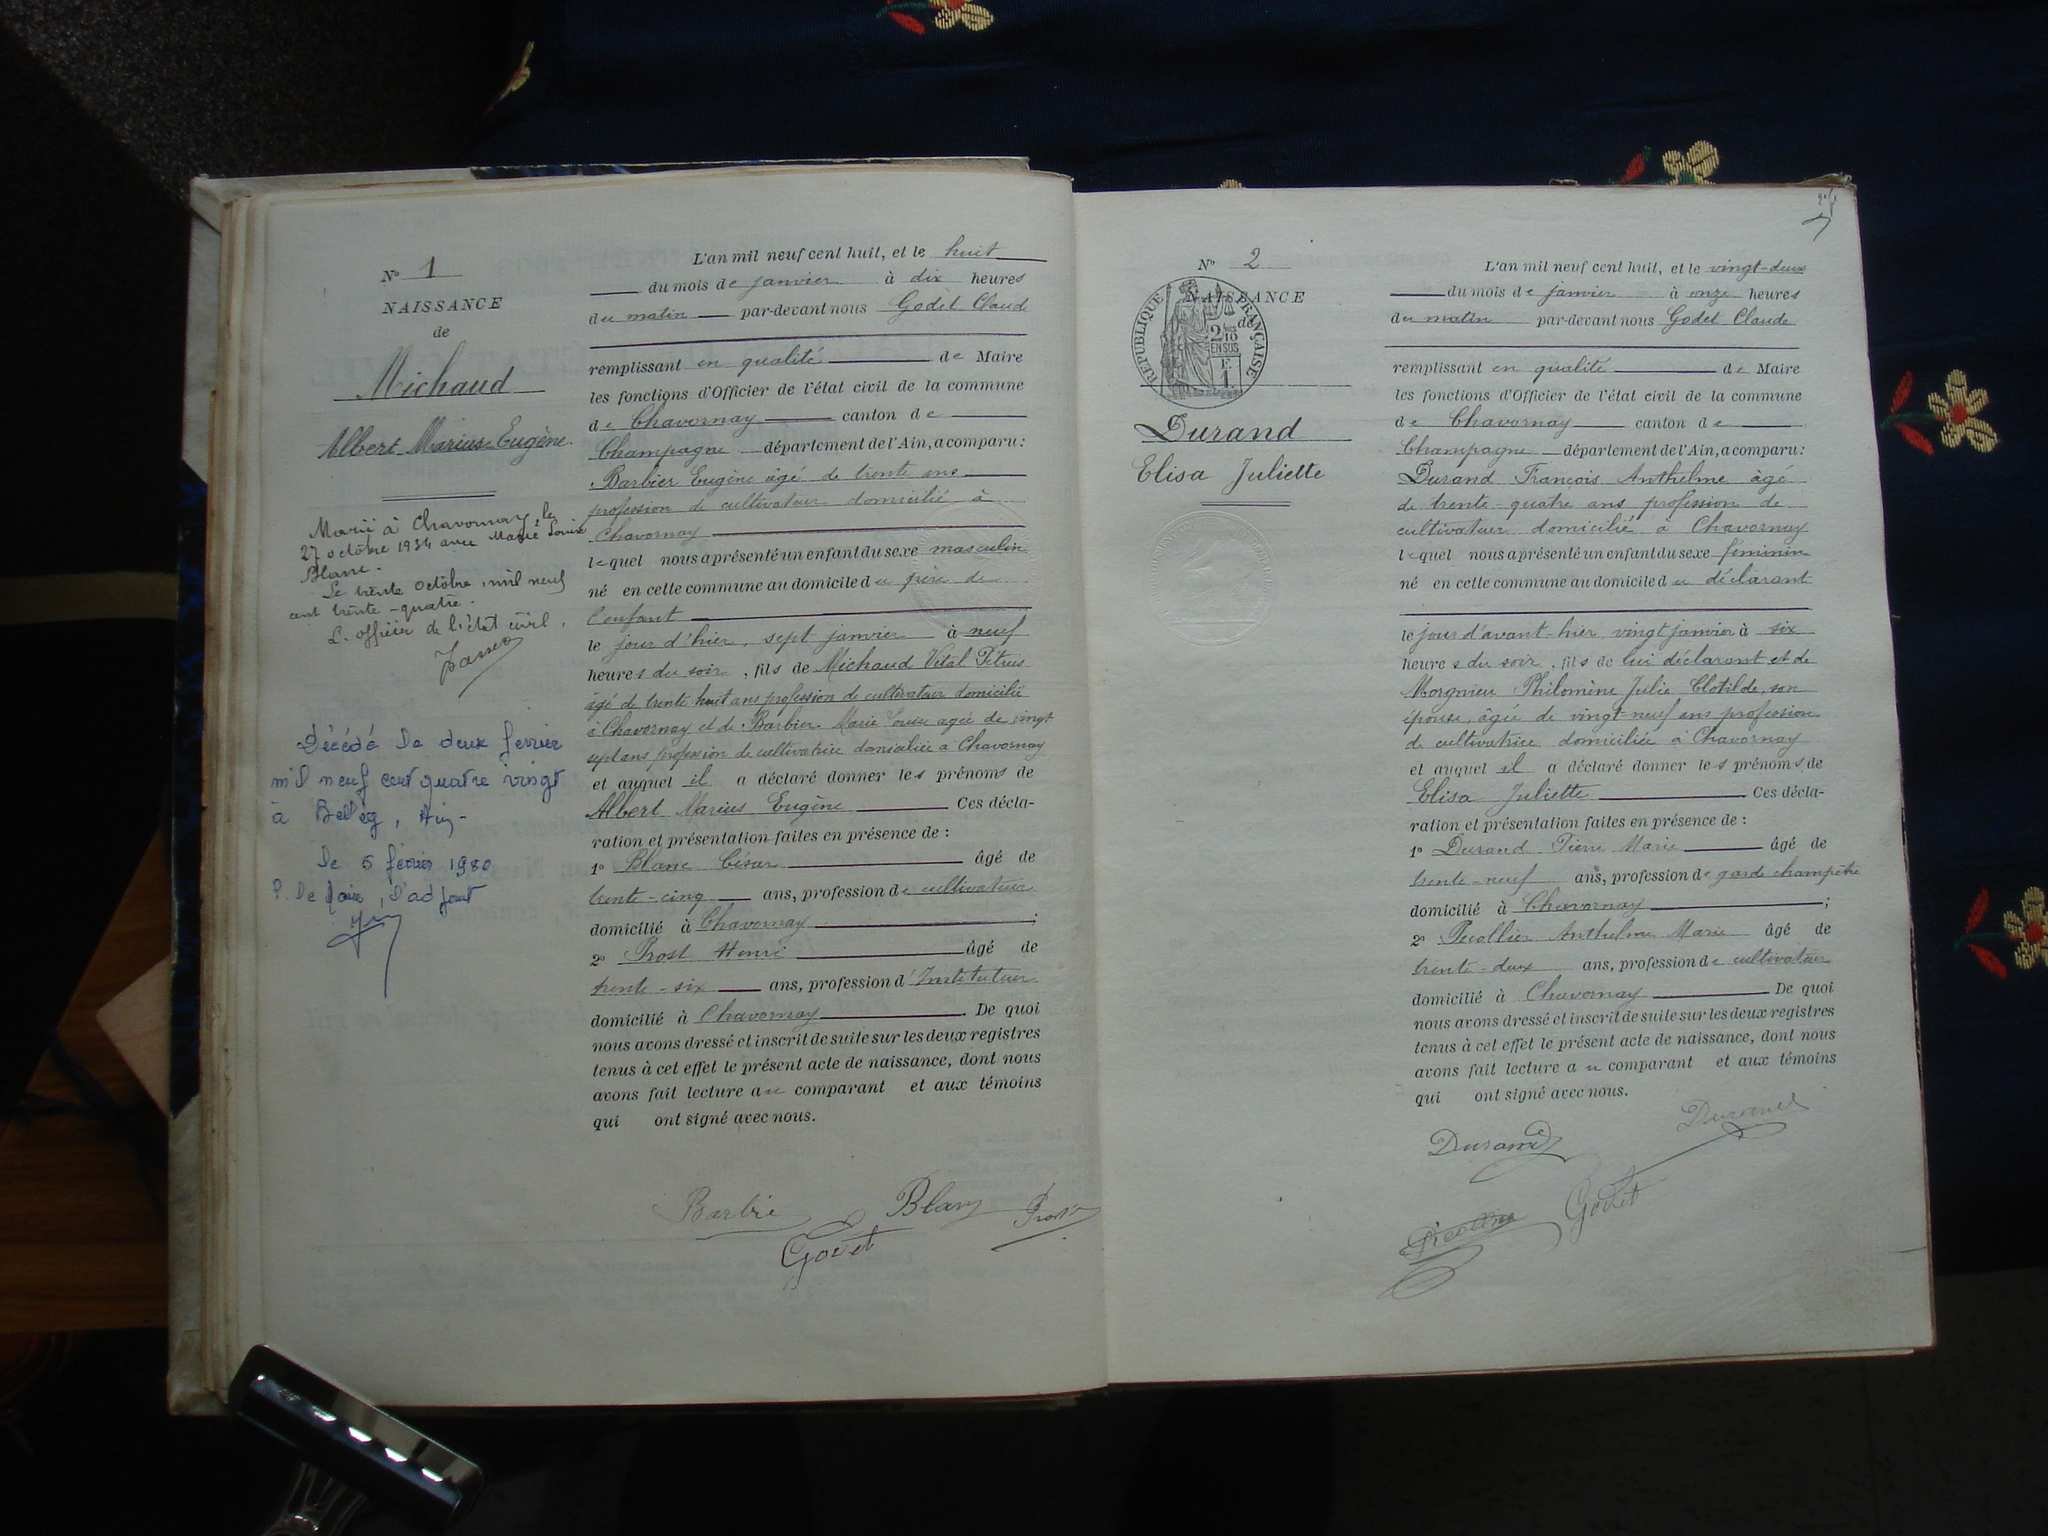 N° 1
NAISSANCE
de
Michaud
Albert Marius Eugène.
Marié à Chavornay le
27 octobre 1934 avec Marie Louise
Blanc.
Le trente octobre mil neuf
cent trente-quatre.
L'officier de l'état civil,
Décédé le deux février
mil neuf cent quatre vingt
à Belley, Ain -
Le 5 février 1980
P. le Maire, l'adjoint
L'an mil neuf cent huit, et le huit
du mois de janvier à dix heures
du matin par-devant nous Godet Claude
remplissant en qualité de Maire
les fonctions d'Officier de l'état civil de la commune
de Chavornay canton de
Champagne département de l'Ain, a comparu:
Barbier Eugène âgé de trente ans
profession de cultivateur domicilié à
Chavornay
lequel nous a présenté un enfant du sexe masculin
né en cette commune au domicile du père de
l'enfant
le jour d'hier, sept janvier à neuf
heures du soir, fils de Michaud Vital Pétrus
âgé de trente huit ans profession de cultivateur domicilié
à Chavornay et de Barbier Marie Louise agée de vingt
sept ans profession de cultivatrice domiciliée à Chavornay
et auquel il a déclaré donner les prénoms de
Albert Marius Eugène Ces décla-
ration et présentation faites en présence de :
1° Blanc César âgé de
trente-cinq ans, profession de cultivateur
domicilié à Chavornay ;
2° Prost Henri âgé de
trente-six ans, profession d'Instituteur
domicilié à Chavornay. De quoi
nous avons dressé et inscrit de suite sur les deux registres
tenus à cet effet le présent acte de naissance, dont nous
avons fait lecture au comparant et aux témoins
qui ont signé avec nous.
Barbie Blanc Prost
Godet
N° 2
NAISSANCE
de
RÉPUBLIQUE FRANÇAISE
2/10
EN SUS
Durand
Elisa Juliette
L'an mil neuf cent huit, et le vingt-deux
du mois de janvier à onze heures
du matin par-devant nous Godet Claude
remplissant en qualité de Maire
les fonctions d'Officier de l'état civil de la commune
de Chavornay canton de
Champagne département de l'Ain, a comparu:
Durand François Anthelme âgé
de trente-quatre ans profession de
cultivateur domicilié à Chavornay
lequel nous a présenté un enfant du sexe féminin
né en cette commune au domicile du déclarant
le jour d'avant-hier vingt janvier à six
heures du soir, fils de lui déclarant et de
Morgnieu Philomène Julie Clotilde, son
épouse, âgée de vingt-neuf ans profession
de cultivatrice domiciliée à Chavornay
et auquel il a déclaré donner les prénoms de
Elisa Juliette. Ces décla-
ration et présentation faites en présence de :
1° Durand Pierre Marie âgé de
trente-neuf ans, profession de garde champêtre
domicilié à Chavornay ;
2° Pécollier Anthelme Marie âgé de
trente-deux ans, profession de cultivateur
domicilié à Chavornay. De quoi
nous avons dressé et inscrit de suite sur les deux registres
tenus à cet effet le présent acte de naissance, dont nous
avons fait lecture au comparant et aux témoins
qui ont signé avec nous.
Durand Durand
Godet